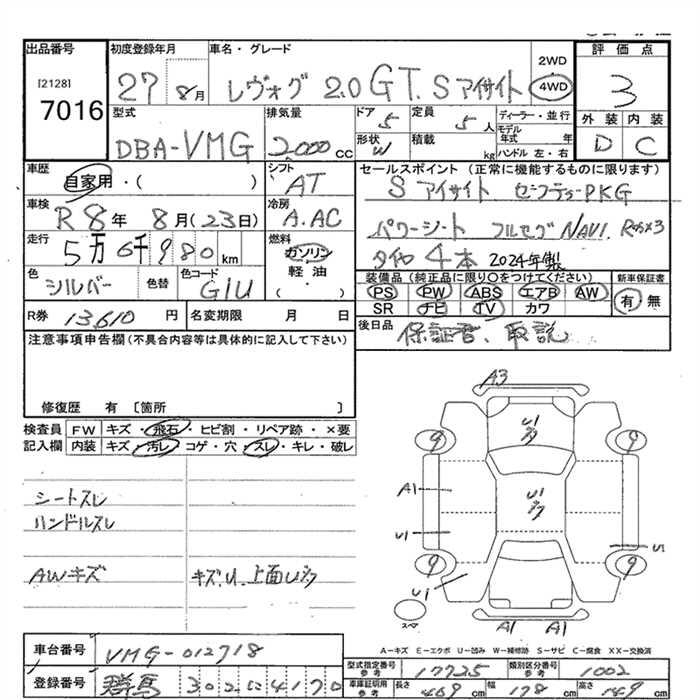 出品番号 初度登録年月 車名・グレード 2WD 評価点
[2128] 7016 27 8月 レヴォーグ 2.0 GT.S アイサイト 4WD 3
型式 排気量 ドア 5 定員 5人 ディーラー・並行 外装 内装
DBA-VMG 2000cc 形状 W 積載 kg モデル年式 年 ハンドル 左・右 D C
車歴 シフト セールスポイント (正常に機能するものに限ります)
自家用・( ) AT S アイサイト セーフティーPKG
車検 R8年 8月(23日) 冷房 A.AC パワーシート フルセグNAVI.
走行 5万6千980km 燃料 ガソリン 軽油 ( ) タイヤ 4本 2024年製
色 シルバー 色替 色コード G1U 装備品 (純正品に限り〇をつけてください) 新車保証書
PS PW ABS エアB AW 有・無
SR ナビ TV カワ
R券 13,610円 名変期限 月 日 後日品 保証書、取説
注意事項申告欄 (不具合内容等は具体的に記入して下さい)
修復歴 有 〔箇所 〕
検査員 FW キズ・飛石・ヒビ割・リペア跡・×要
記入欄 内装 キズ・汚レ・コゲ・穴・スレ・キレ・破レ
シートスレ
ハンドルスレ
AWキズ キズ.U.上面Uタク
A3
U1
9 9
A1 U1
U1 U1
9 9
U1
スペア A1 A1
A-キズ E-エクボ U-凹み W-補修跡 S-サビ C-腐食 XX-交換済
車台番号 VMG-012718
型式指定番号 参考 17725 類別区分番号 参考 1002
登録番号 群馬 302 に 4170 車庫証明用 参考 長さ 469 cm 幅 178 高さ 149 cm